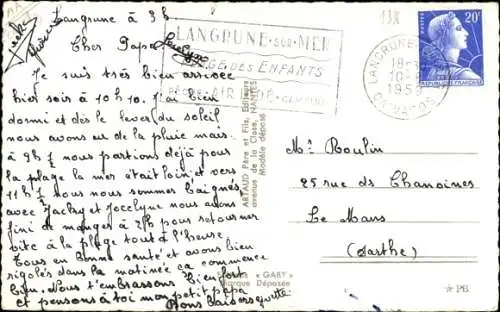 Langrune à 3h
Cher Papa
Jocelyne
Je suis très bien arrivée
hier soir à 10h10. J'ai bien
dormi et dès le lever du soleil
nous avons eu de la pluie mais
à 9h½ nous partions déjà pour
la plage la mer était loin et vers
11h½ nous nous sommes baignés
avec Jacky et Jocelyne nous avons
fini de manger à 2h pour retourner
vite à la plage tout à l'heure.
Tous en bonne santé et avons bien
rigolés dans la matinée ça commence
bien. Nous t'embrassons bien fort
et pensons à toi mon petit papa
Bons baisers
LANGRUNE SUR MER
PLAGE DES ENFANTS
PÊCHE AIR IODÉ CAMPING
LANGRUNE
18
10
CALVADOS
20F
RÉPUBLIQUE FRANÇAISE
138
ARTAUD Père et Fils, Editeurs
avenue de la Close, NANTES
Modèle déposé
"GABY"
Marque Déposée
Mr Roulin
25 rue des Chanoines
Le Mans
(Sarthe)